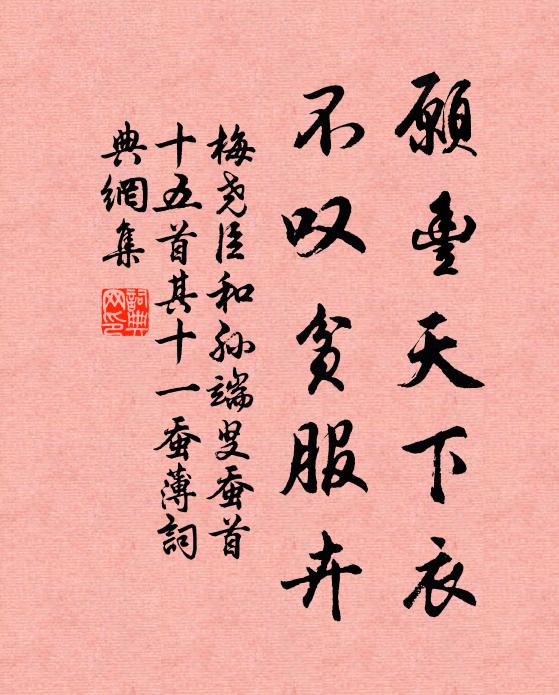 願豐天下衣
不叹貧服卉
梅尧臣和孙端叟蚕首
十五首其十一蚕薄詞
典網集
詞典
网印